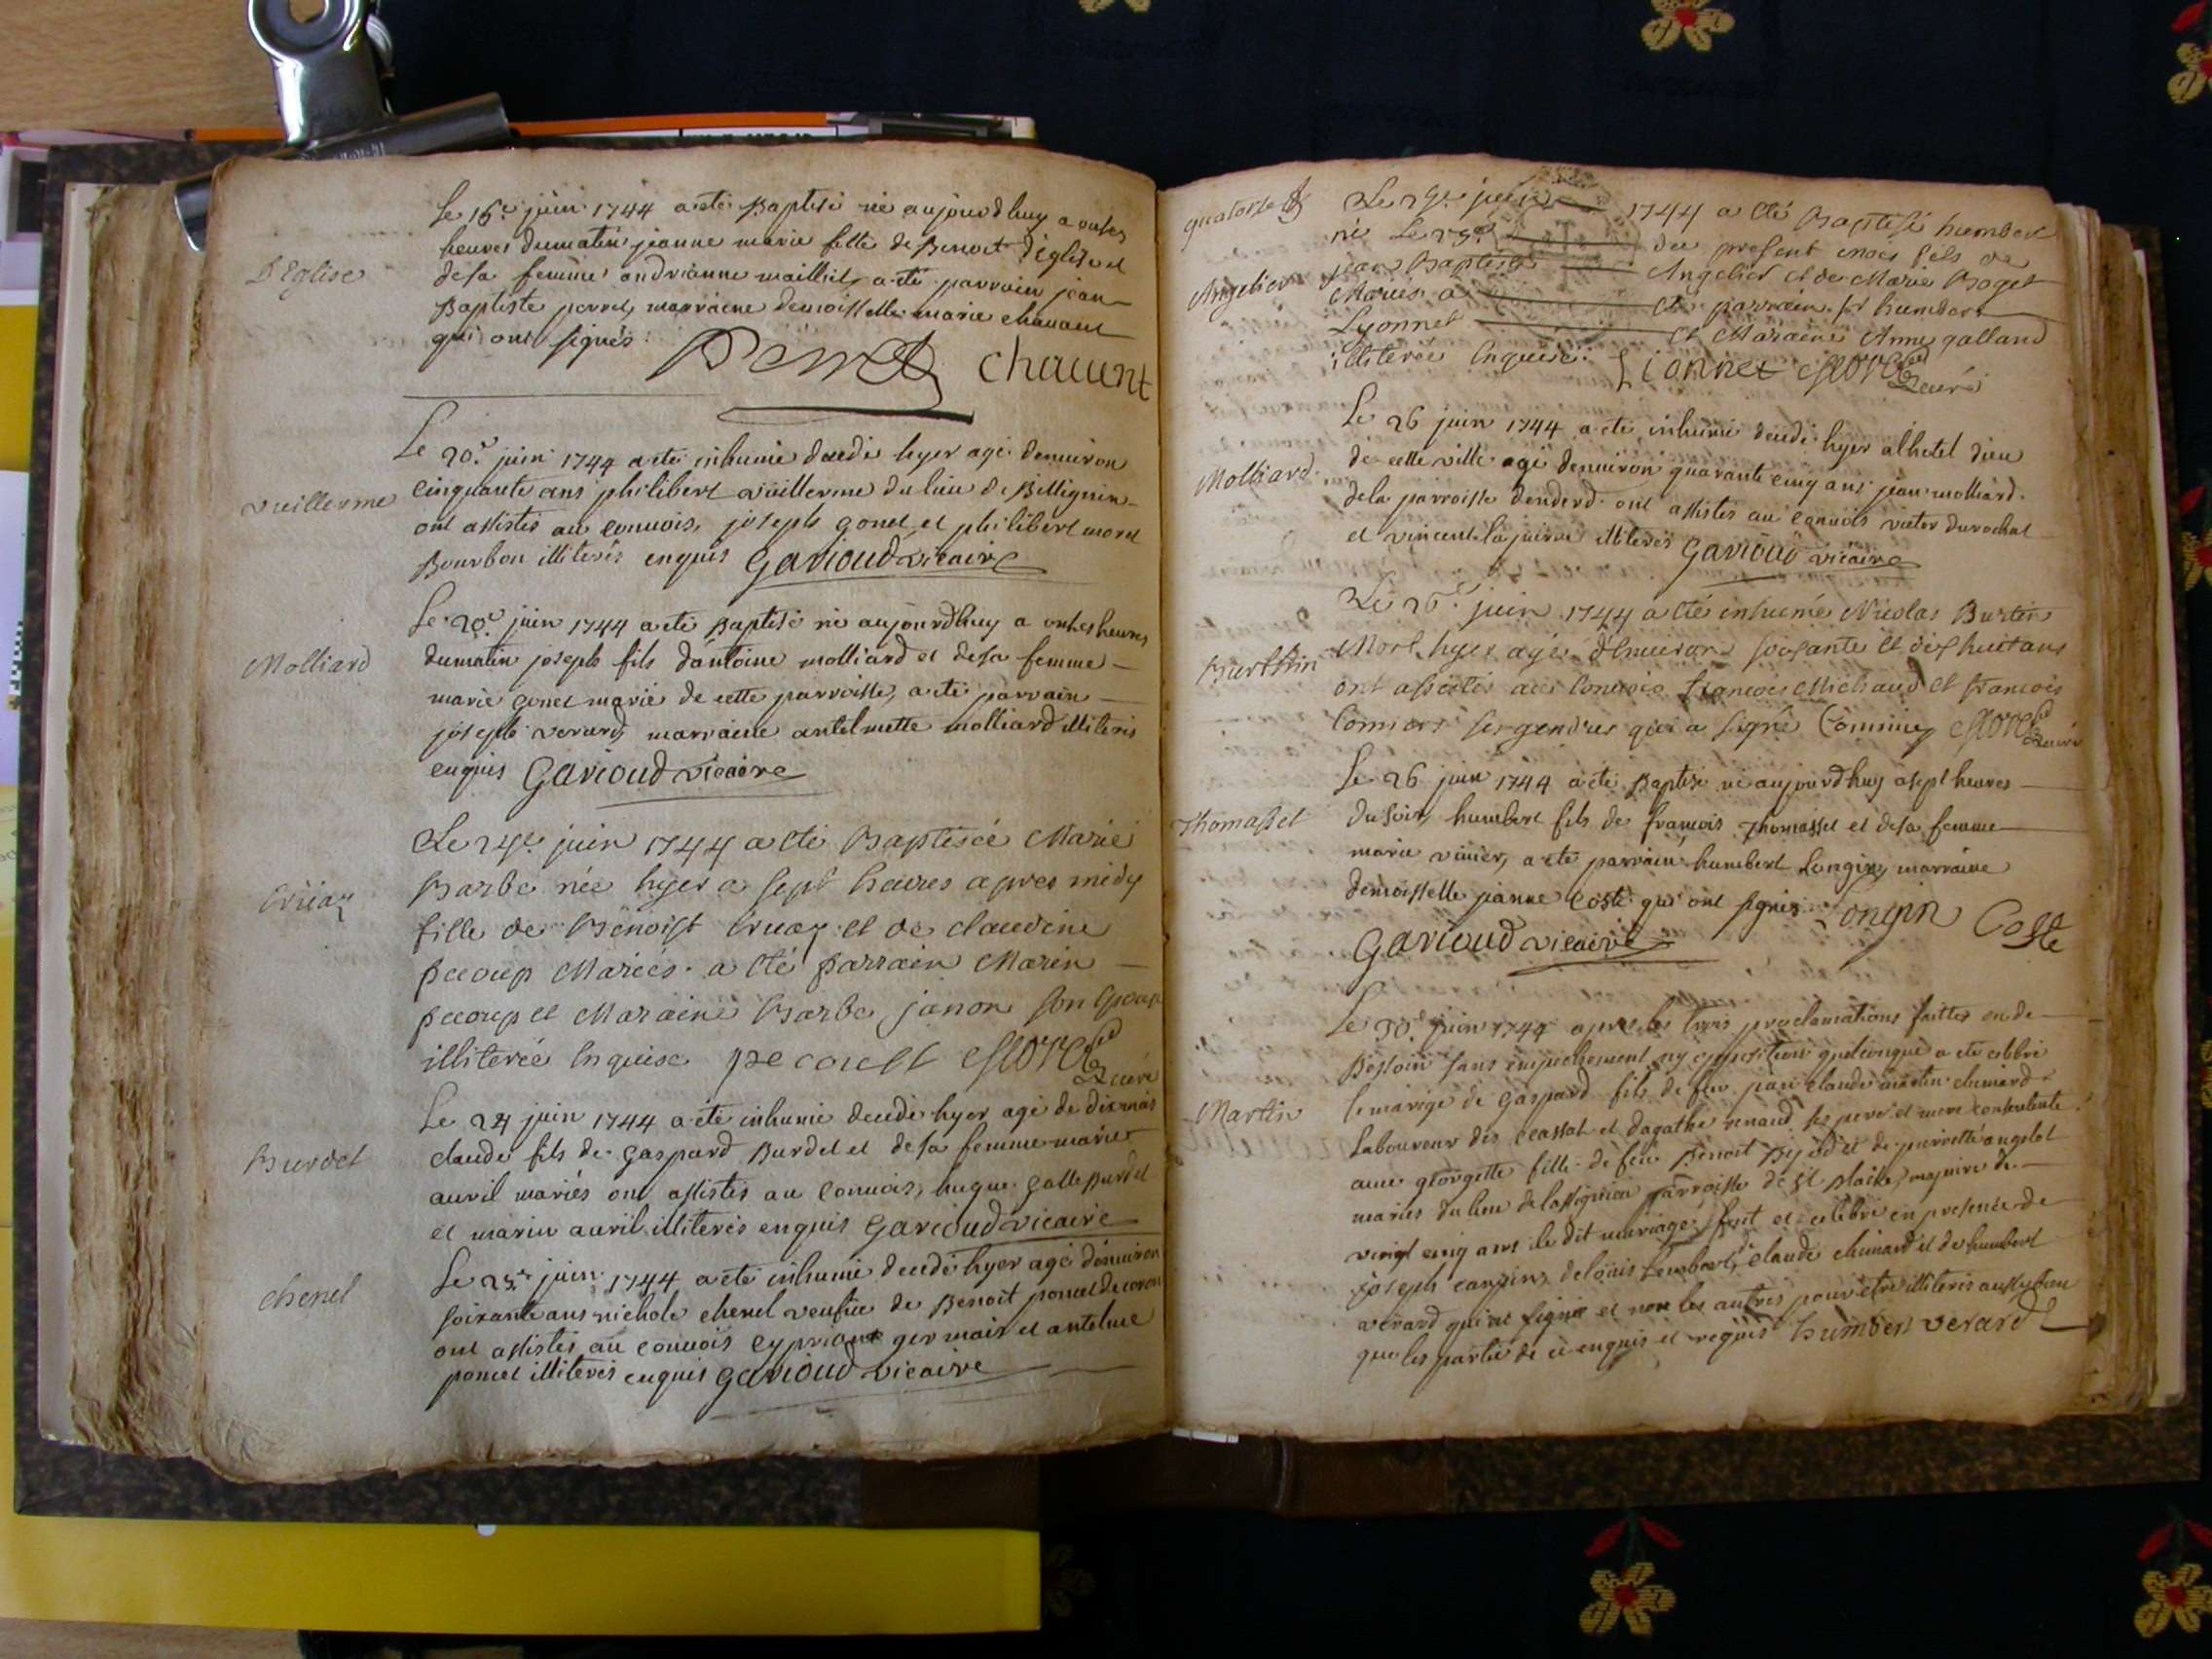 D'Eglise
Le 16e juin 1744 a eté Baptisé né aujourd'huy a onzes
heures dumatin jeanne marie fille de Benoit d'églize et
desa femme andrianne maillet, a eté parrain jean
Baptiste perret, marraine demoisselle marie chauant
qui ont signés.
Perret chauent
vuillerme
Le 20e juin 1744 a eté inhumé decedé hyer agé denuiron
cinquante ans philibert vuillerme du lieu de Billignin
ont assistés au conuois, joseph gonet et philibert morel
Bourbon illiterés enquis Garioud vicaire
Molliard
Le 20e juin 1744 a eté Baptisé né aujourd'huy a onzes heures
dumatin joseph fils dantoine molliard et desa femme
marie gonet marié de cette parroisse, a eté parrain
joseph verard, marraine antelmette molliard illiterés
enquis Garioud vicaire
Cruaz
Le 24e juin 1744 a eté Baptisée Marie
Barbe née hyer a sept heures apres midy
fille de Benoist Cruaz et de claudine
pecoup Mariés. a eté parrain Marin
pecoup et Maraine Barbe janon son
illiterée Enquise pecoult curé
Burdet
Le 24 juin 1744 a eté inhumé decedé hyer agé de dix mois
claude fils de gaspard Burdet et desa femme marie
auril mariés ont assistés au conuois, hugue galle Burdet
et marin auril illiterés enquis Garioud vicaire
chenel
Le 25e juin 1744 a eté inhumé decedé hyer agé denuiron
soixante ans nichole chenel veufue de Benoit poncet
ont assistés au conuois cyprient germain et antelme
poncet illiterés enquis Garioud vicaire
quatorze
Le juin 1744 a eté Baptisé humbert
né Le 25e du present mois fils de
Angelier
jean Baptiste Angelier et de Marie Roget
Mariés a eté parrain sr humbert
Lyonnet et Maraine Anne galland
illiterée Enquise. Lionnet curé
Molliard
Le 26 juin 1744 a eté inhumé decedé hyer alhotel dieu
de cette ville agé denuiron quarante cinq ans jean molliard
dela parroisse ont assistés au conuois victor durochat
et vincent illiterés Garioud vicaire
Burttin
Le 26e juin 1744 a eté inhumé Nicolas Burtin
Mort hyer agé d'Enuiron soixante et dix huit ans
ont assistés au Conuois francois Michaud et francois
ses gendres qui a signé curé
Thomasset
Le 26 juin 1744 a eté Baptisé né aujourd'huy a sept heures
du soir, humbert fils de francois Thomasset et desa femme
marie viuier, a eté parrain humbert Longin, marraine
demoisselle jeanne Coste qui ont signés. Longin Coste
Garioud vicaire
Martin
Le 30e juin 1744 apres les trois proclamations faittes en de
Bessoin sans empechement ny opposition quelconque a eté celebré
le mariage de gaspard fils de feu jean claude martin chunard
Laboureur des et dagathe renaud, ses pere et mere
auec georgette fille de feu Benoit et de pierrette angelot
mariés du lieu de parroisse de st majeure de
vingt cinq ans le dit mariage fait et celebré en presence de
joseph carrier, delouis claude chunard et de humbert
verard qui a signé et non les autres pour etre illiterés aussy bien
que les partie de ce enquis et requis humbert verard